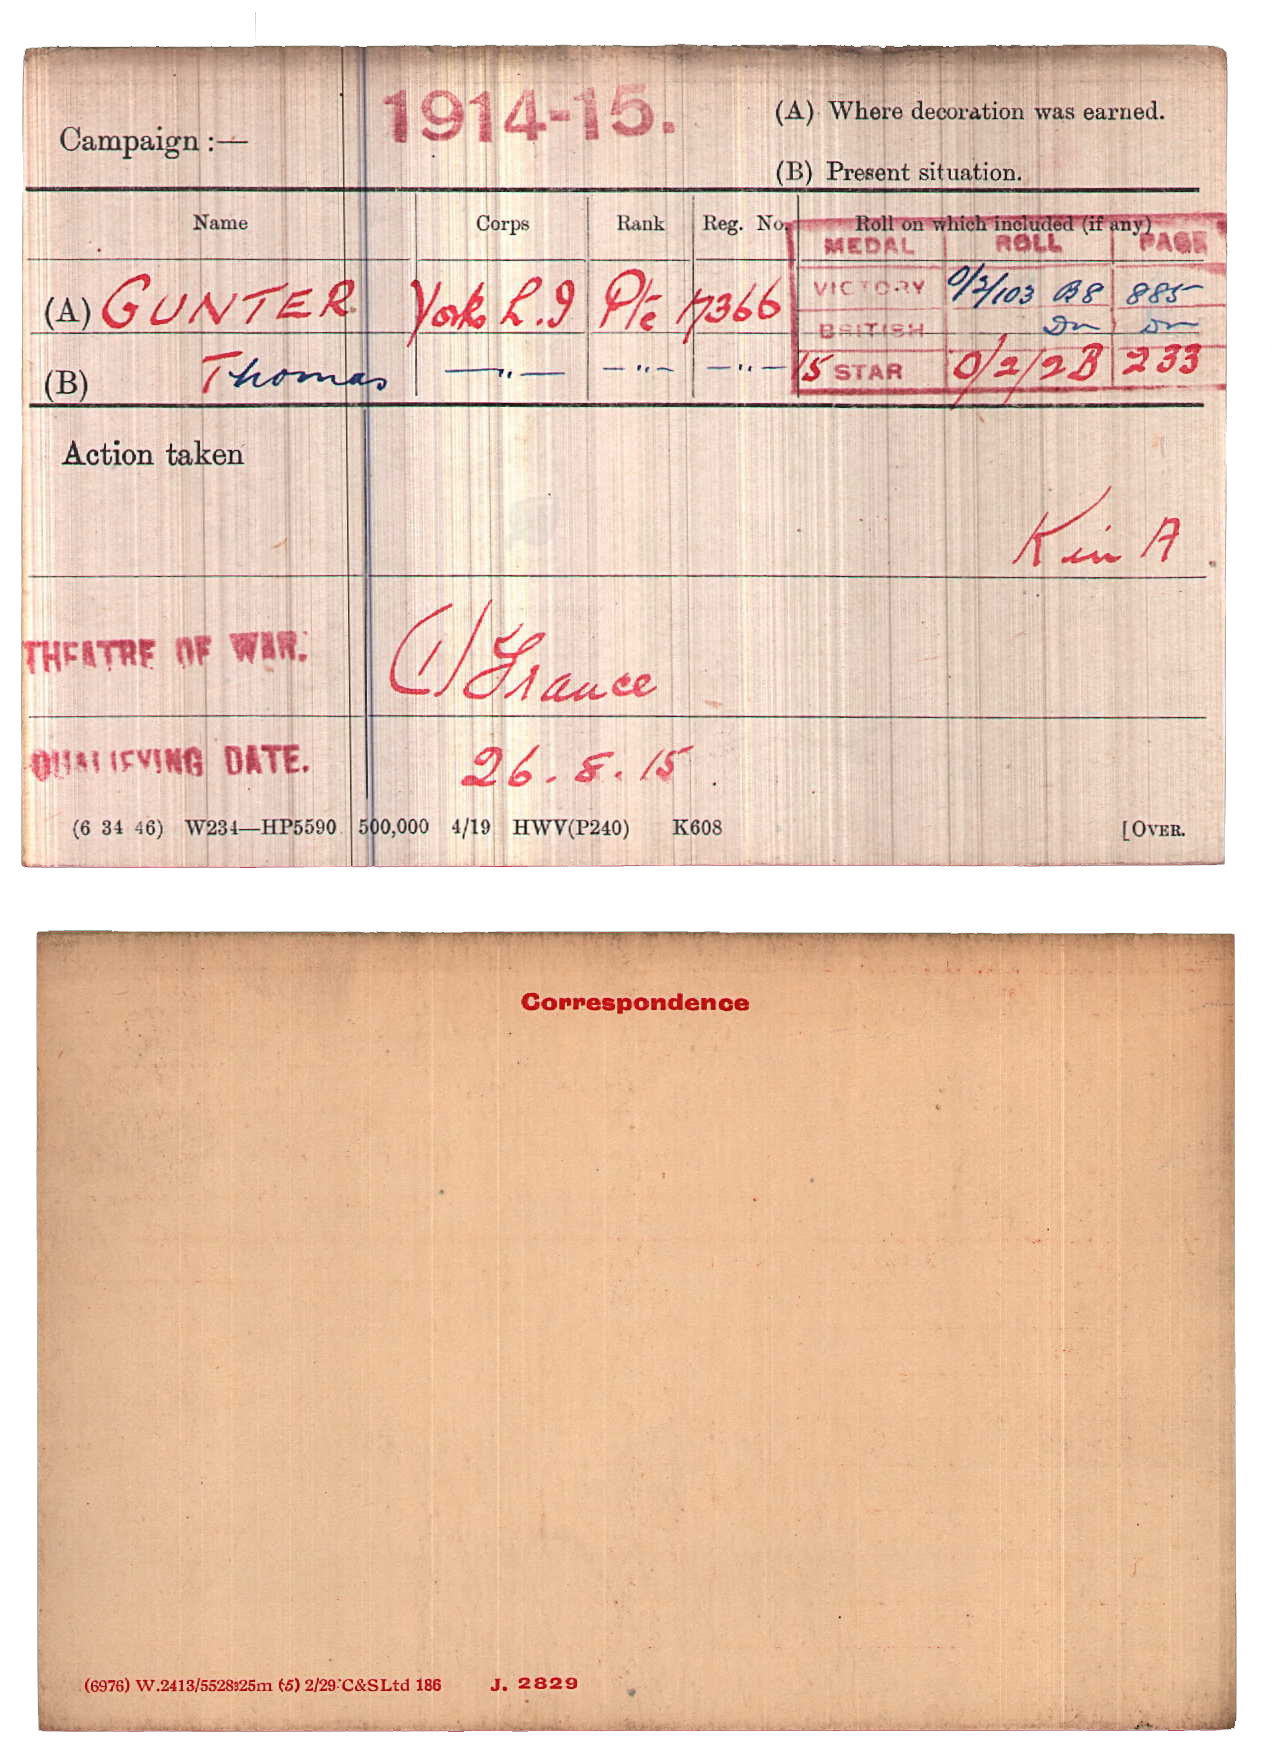 1914-15.
Campaign :—
(A) Where decoration was earned.
(B) Present situation.
Name Corps Rank Reg. No. Roll on which included (if any)
MEDAL ROLL PAGE
(A) GUNTER York L.I Pte 17366 VICTORY O/2/103 B8 885
BRITISH Do Do
(B) Thomas —"— —"— —"— 15 STAR O/2/2B 233
Action taken
K in A
THEATRE OF WAR. (1) France
QUALIFYING DATE. 26.8.15
(6 34 46) W234—HP5590 500,000 4/19 HWV(P240) K608 [OVER.
Correspondence
(6976) W.2413/5528 25m (5) 2/29 C&SLtd 186 J. 2829